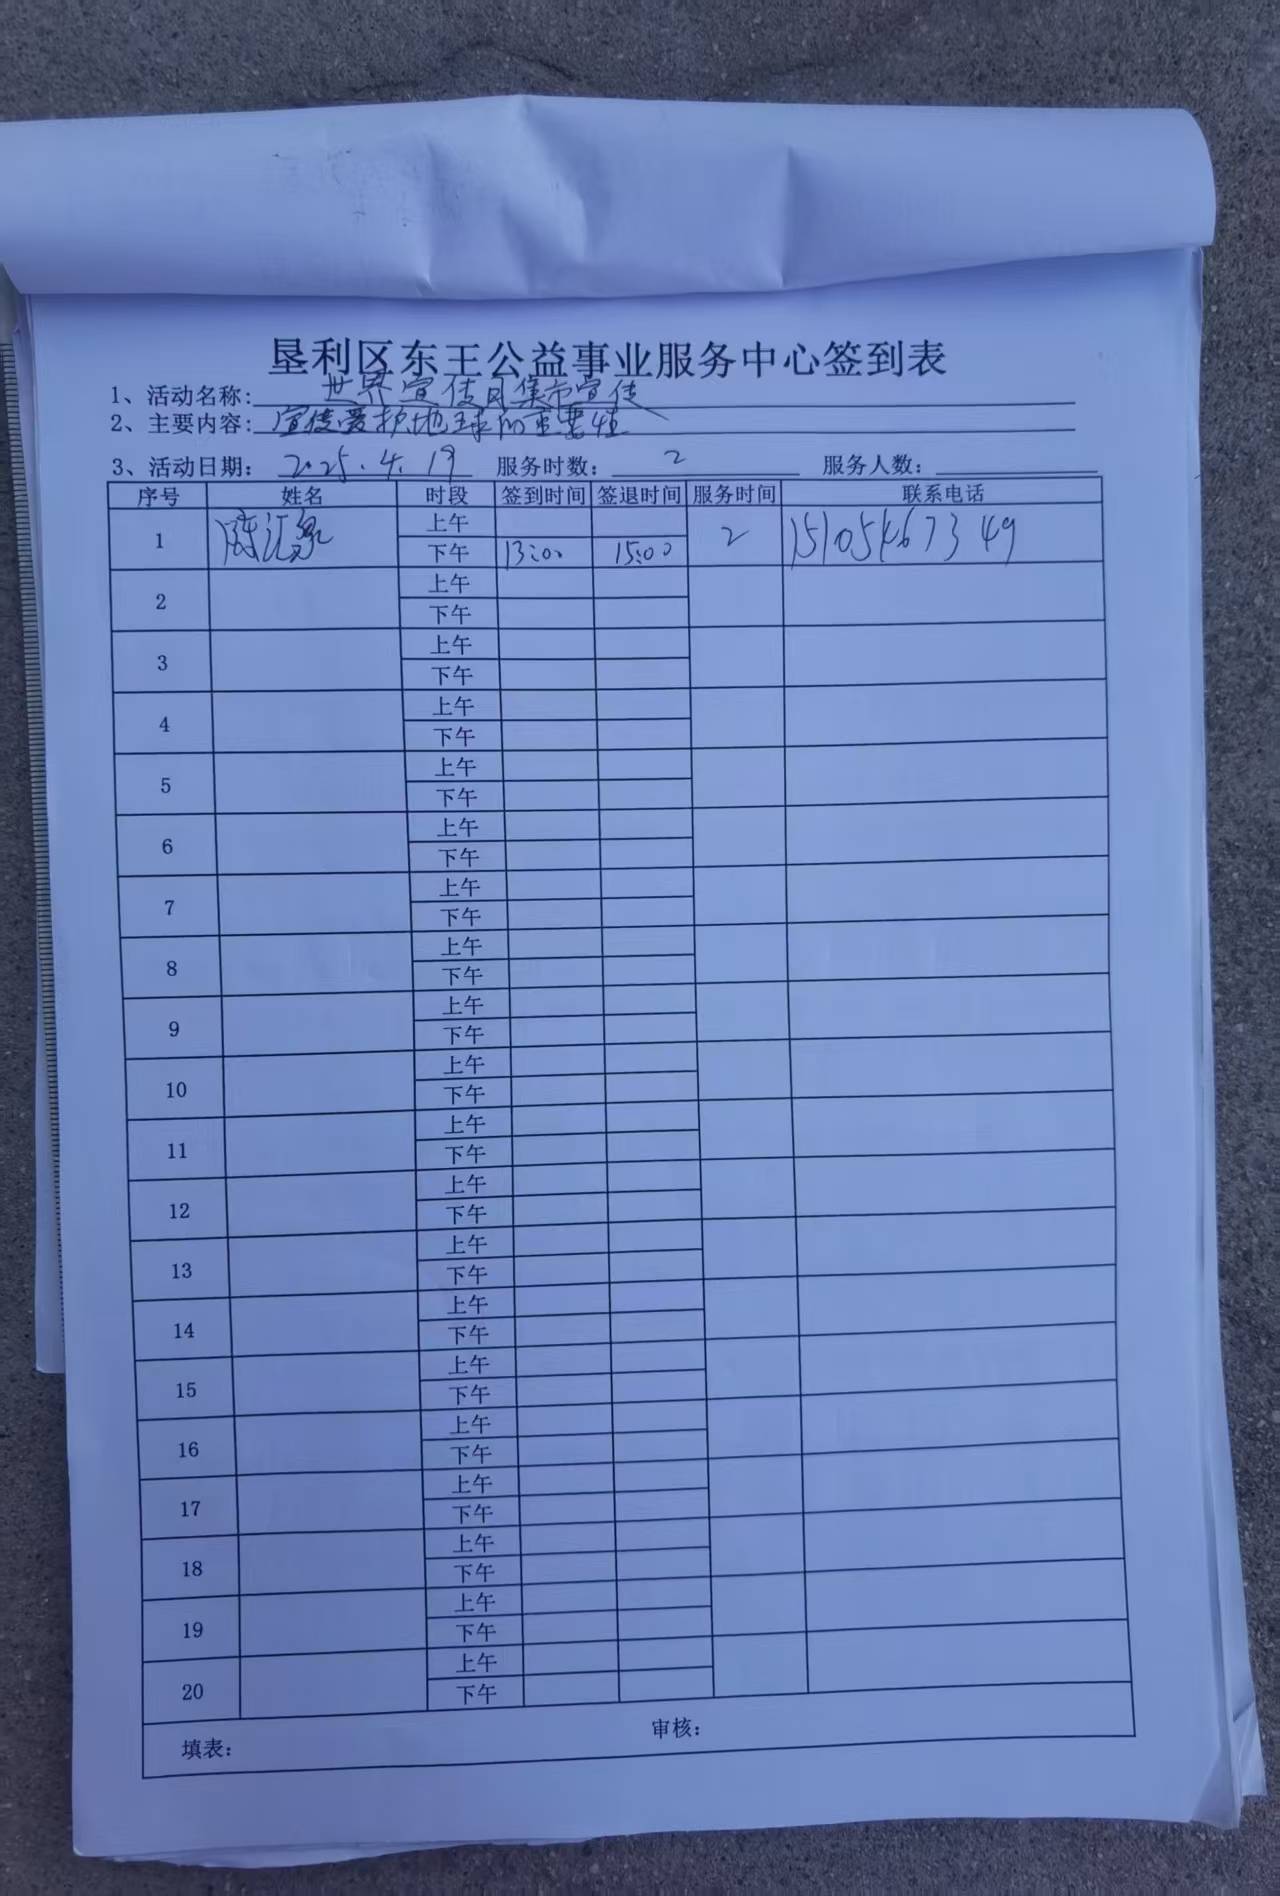 垦利区东王公益事业服务中心签到表
1、活动名称: 世界宣传日集市宣传
2、主要内容: 宣传爱护地球的重要性
3、活动日期: 2025.4.19 服务时数: 2 服务人数:
序号 姓名 时段 签到时间 签退时间 服务时间 联系电话
1 陈汇泉 上午 2 15105467349
下午 13:00 15:00
2 上午
下午
3 上午
下午
4 上午
下午
5 上午
下午
6 上午
下午
7 上午
下午
8 上午
下午
9 上午
下午
10 上午
下午
11 上午
下午
12 上午
下午
13 上午
下午
14 上午
下午
15 上午
下午
16 上午
下午
17 上午
下午
18 上午
下午
19 上午
下午
20 上午
下午
填表: 审核: